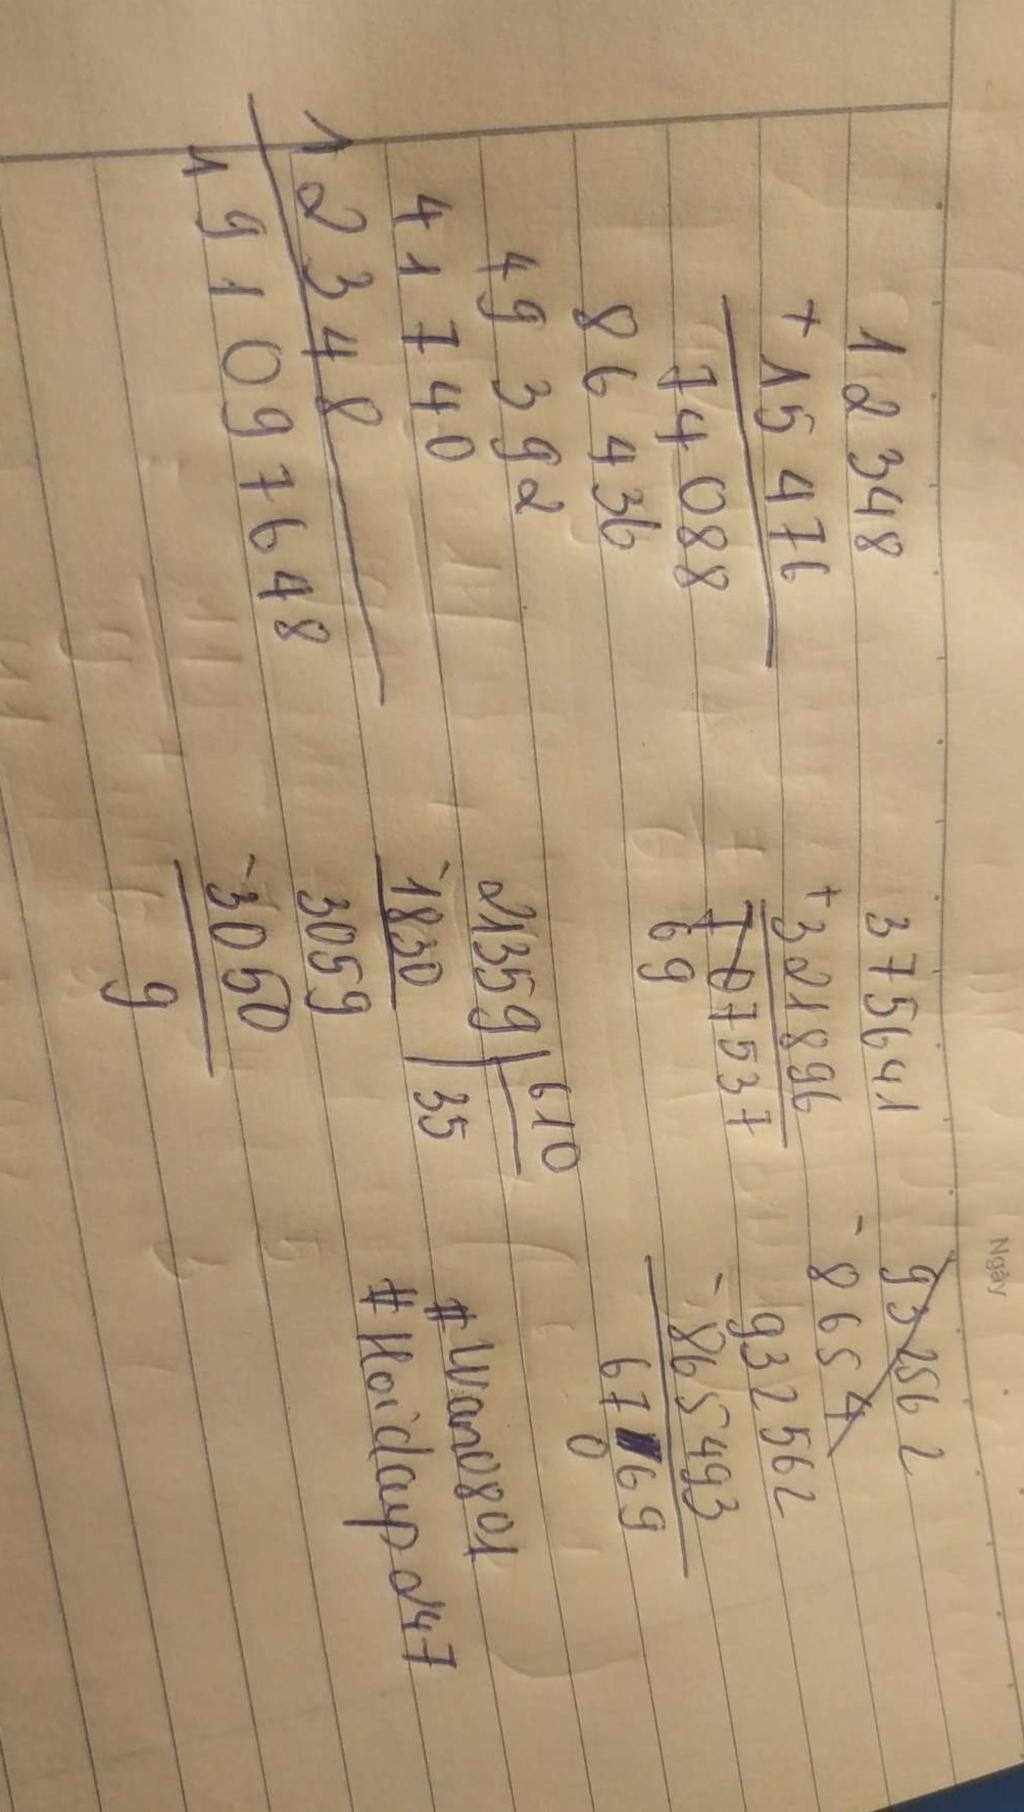 Ngày
12348
+ 15476
74088
86436
49392
41740
12348
191097648
375641
+ 321896
707537
69
21359 | 610
- 1830 | 35
3059
- 3050
9
93256 2
- 8654
932562
- 865493
67 69
0
#Wano801
#Hoidap247